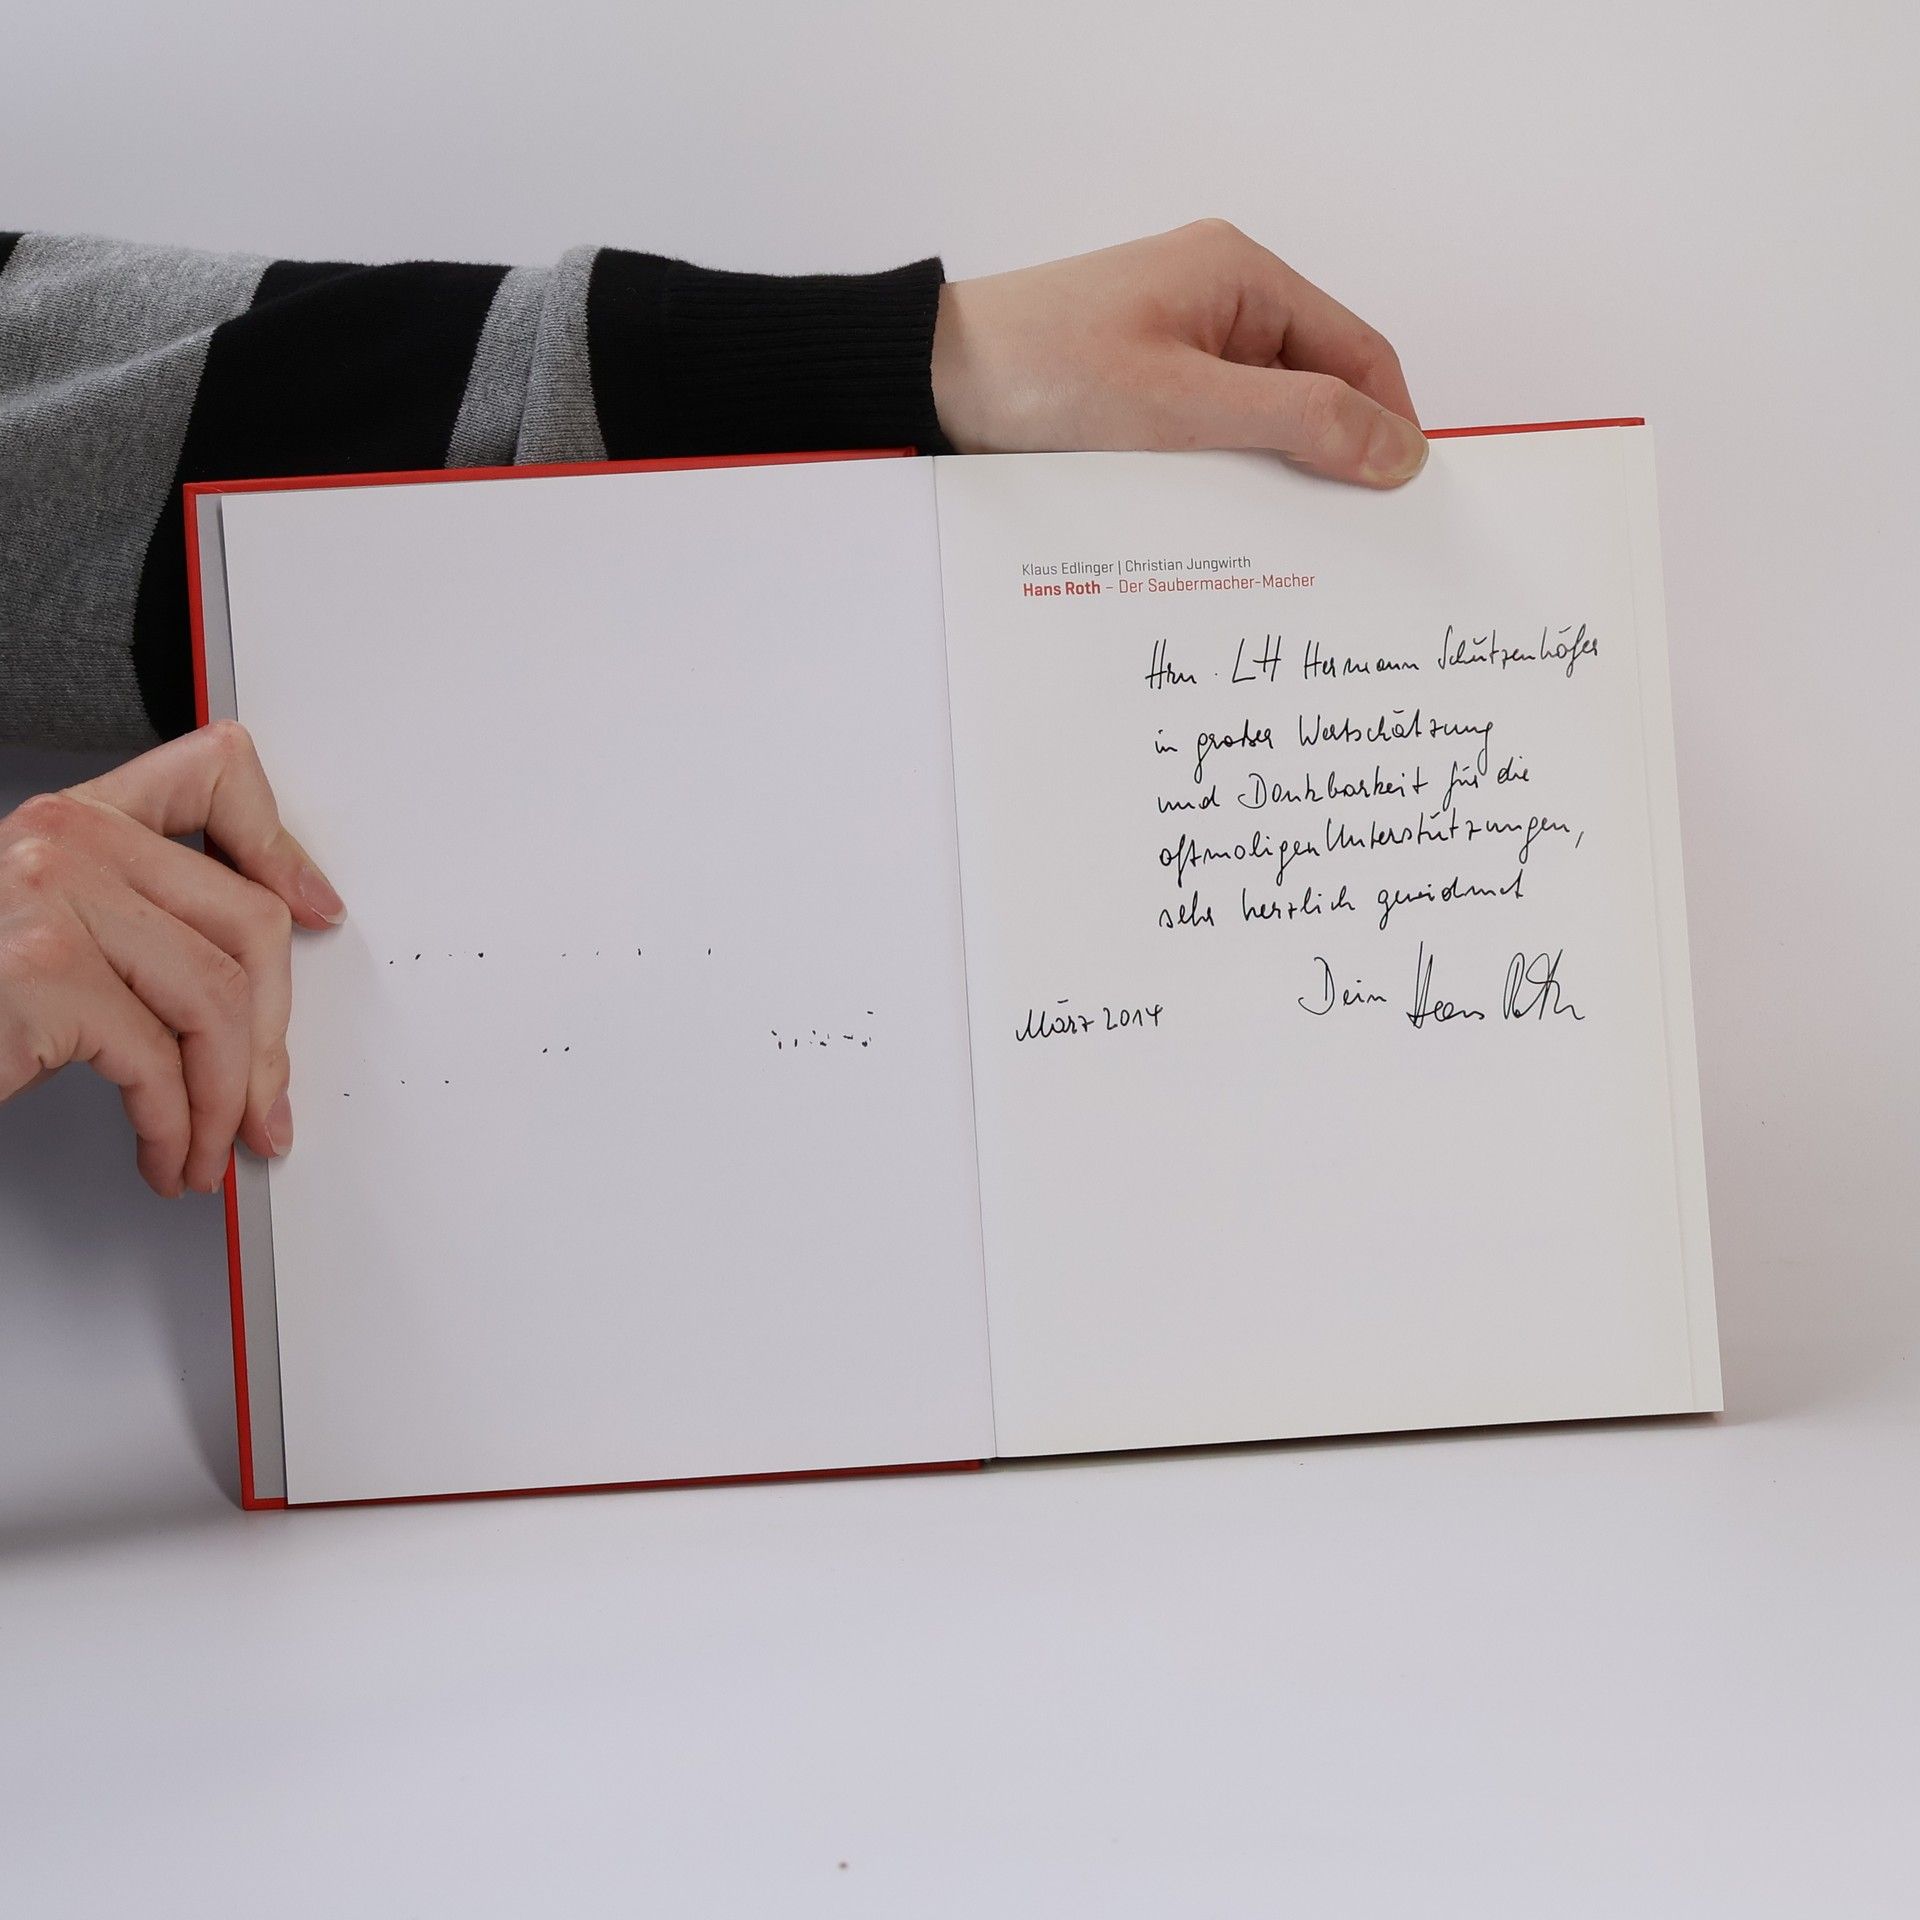 Klaus Edlinger | Christian Jungwirth
Hans Roth – Der Saubermacher-Macher
Hrn. LH Hermann Schützenhöfer
in großer Wertschätzung
und Dankbarkeit für die
oftmaligen Unterstützungen,
sehr herzlich gewidmet
Dein Hans Roth
März 2014